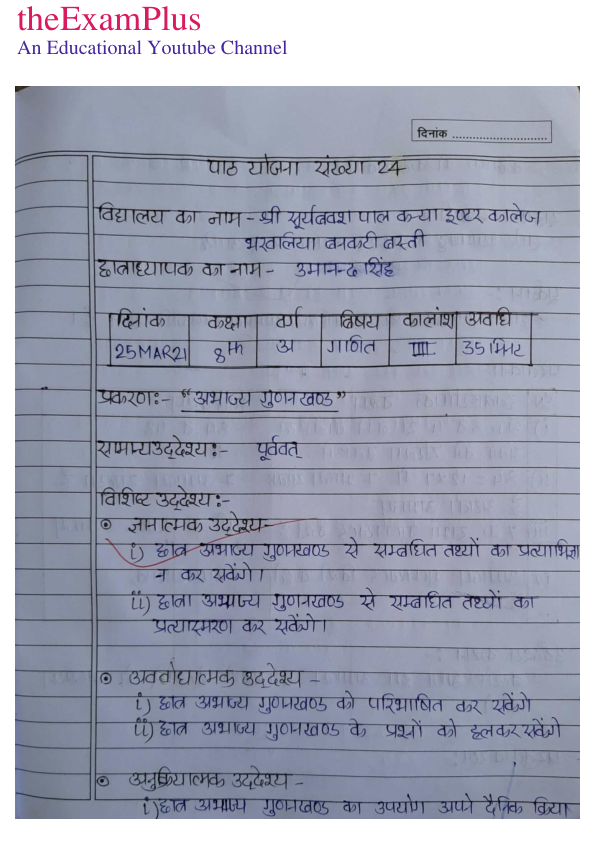 theExamPlus
An Educational Youtube Channel
दिनांक ............................
पाठ योजना संख्या 24
विद्यालय का नाम - श्री सूर्यबक्श पाल कन्या इण्टर कालेज
भरवलिया बनकटी बस्ती
छात्राध्यापक का नाम - उमानन्द सिंह
दिनांक कक्षा वर्ग विषय कालांश अवधि
25 MAR 21 8th अ गणित III 35 मिनट
प्रकरण:- "अभाज्य गुणनखण्ड"
सामान्य उद्देश्य:- पूर्ववत्
विशिष्ट उद्देश्य:-
⊙ ज्ञानात्मक उद्देश्य -
i) छात्र अभाज्य गुणनखण्ड से सम्बधित तथ्यों का प्रत्याभिज्ञा
न कर सकेंगे।
ii) छात्र अभाज्य गुणनखण्ड से सम्बधित तथ्यों का
प्रत्यास्मरण कर सकेंगे।
⊙ अवबोधात्मक उद्देश्य -
i) छात्र अभाज्य गुणनखण्ड को परिभाषित कर सकेंगे
ii) छात्र अभाज्य गुणनखण्ड के प्रश्नों को हल कर सकेंगे
⊙ अनुक्रियात्मक उद्देश्य -
i) छात्र अभाज्य गुणनखण्ड का उपयोग अपने दैनिक क्रिया